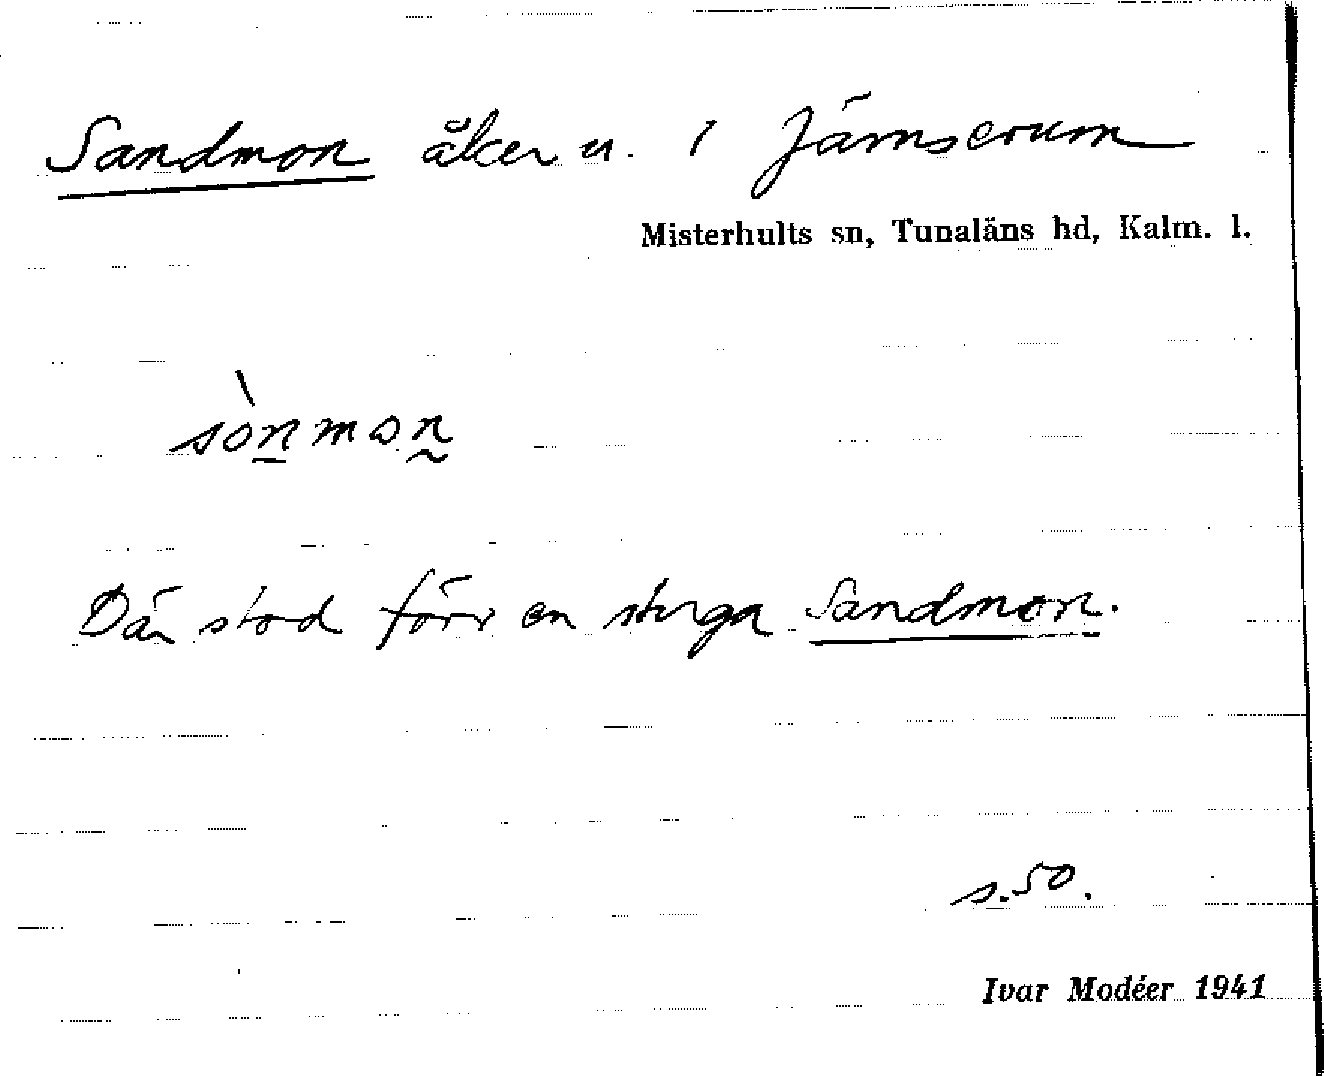 Sandmon åker u. i Jämserum
Misterhults sn, Tunaläns hd, Kalm. l.
sònmon
Där stod förr en stuga Sandmon.
s. 50.
Ivar Modéer 1941